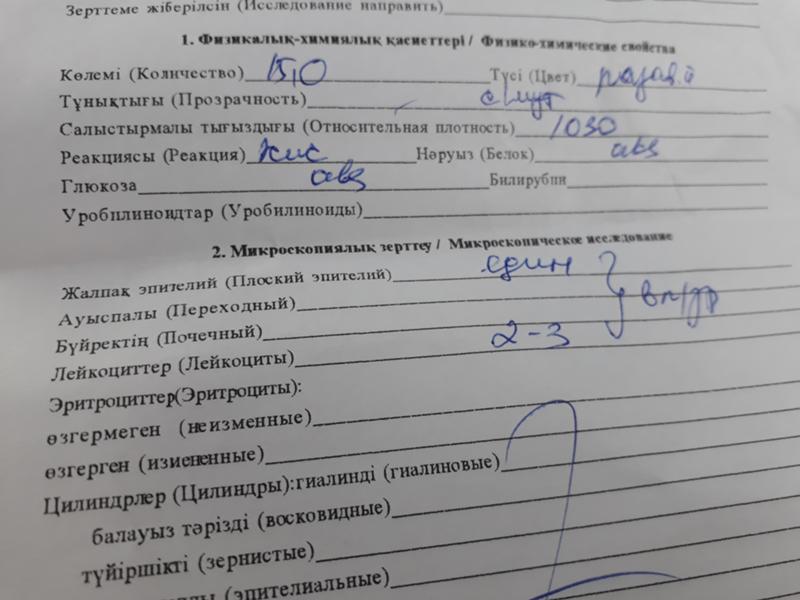 Зерттеме жіберілсін (Исследование направить)
1. Физикалық-химиялық қасиеттері / Физико-химические свойства
Көлемі (Количество) 15,0 Түсі (Цвет)
Тұнықтығы (Прозрачность) с/мут
Салыстырмалы тығыздығы (Относительная плотность) 1030
Реакциясы (Реакция) кис Нәруыз (Белок) abs
Глюкоза abs Билирубин
Уробилиноидтар (Уробилиноиды)
2. Микроскопиялық зерттеу / Микроскопическое исследование
Жалпақ эпителий (Плоский эпителий) един
Ауыспалы (Переходный) в п/зр
Бүйректің (Почечный)
Лейкоциттер (Лейкоциты) 2-3
Эритроциттер(Эритроциты):
өзгермеген (неизменные)
өзгерген (изиененные)
Цилиндрлер (Цилиндры):гиалинді (гиалиновые)
балауыз тәрізді (восковидные)
түйіршікті (зернистые)
(эпителиальные)